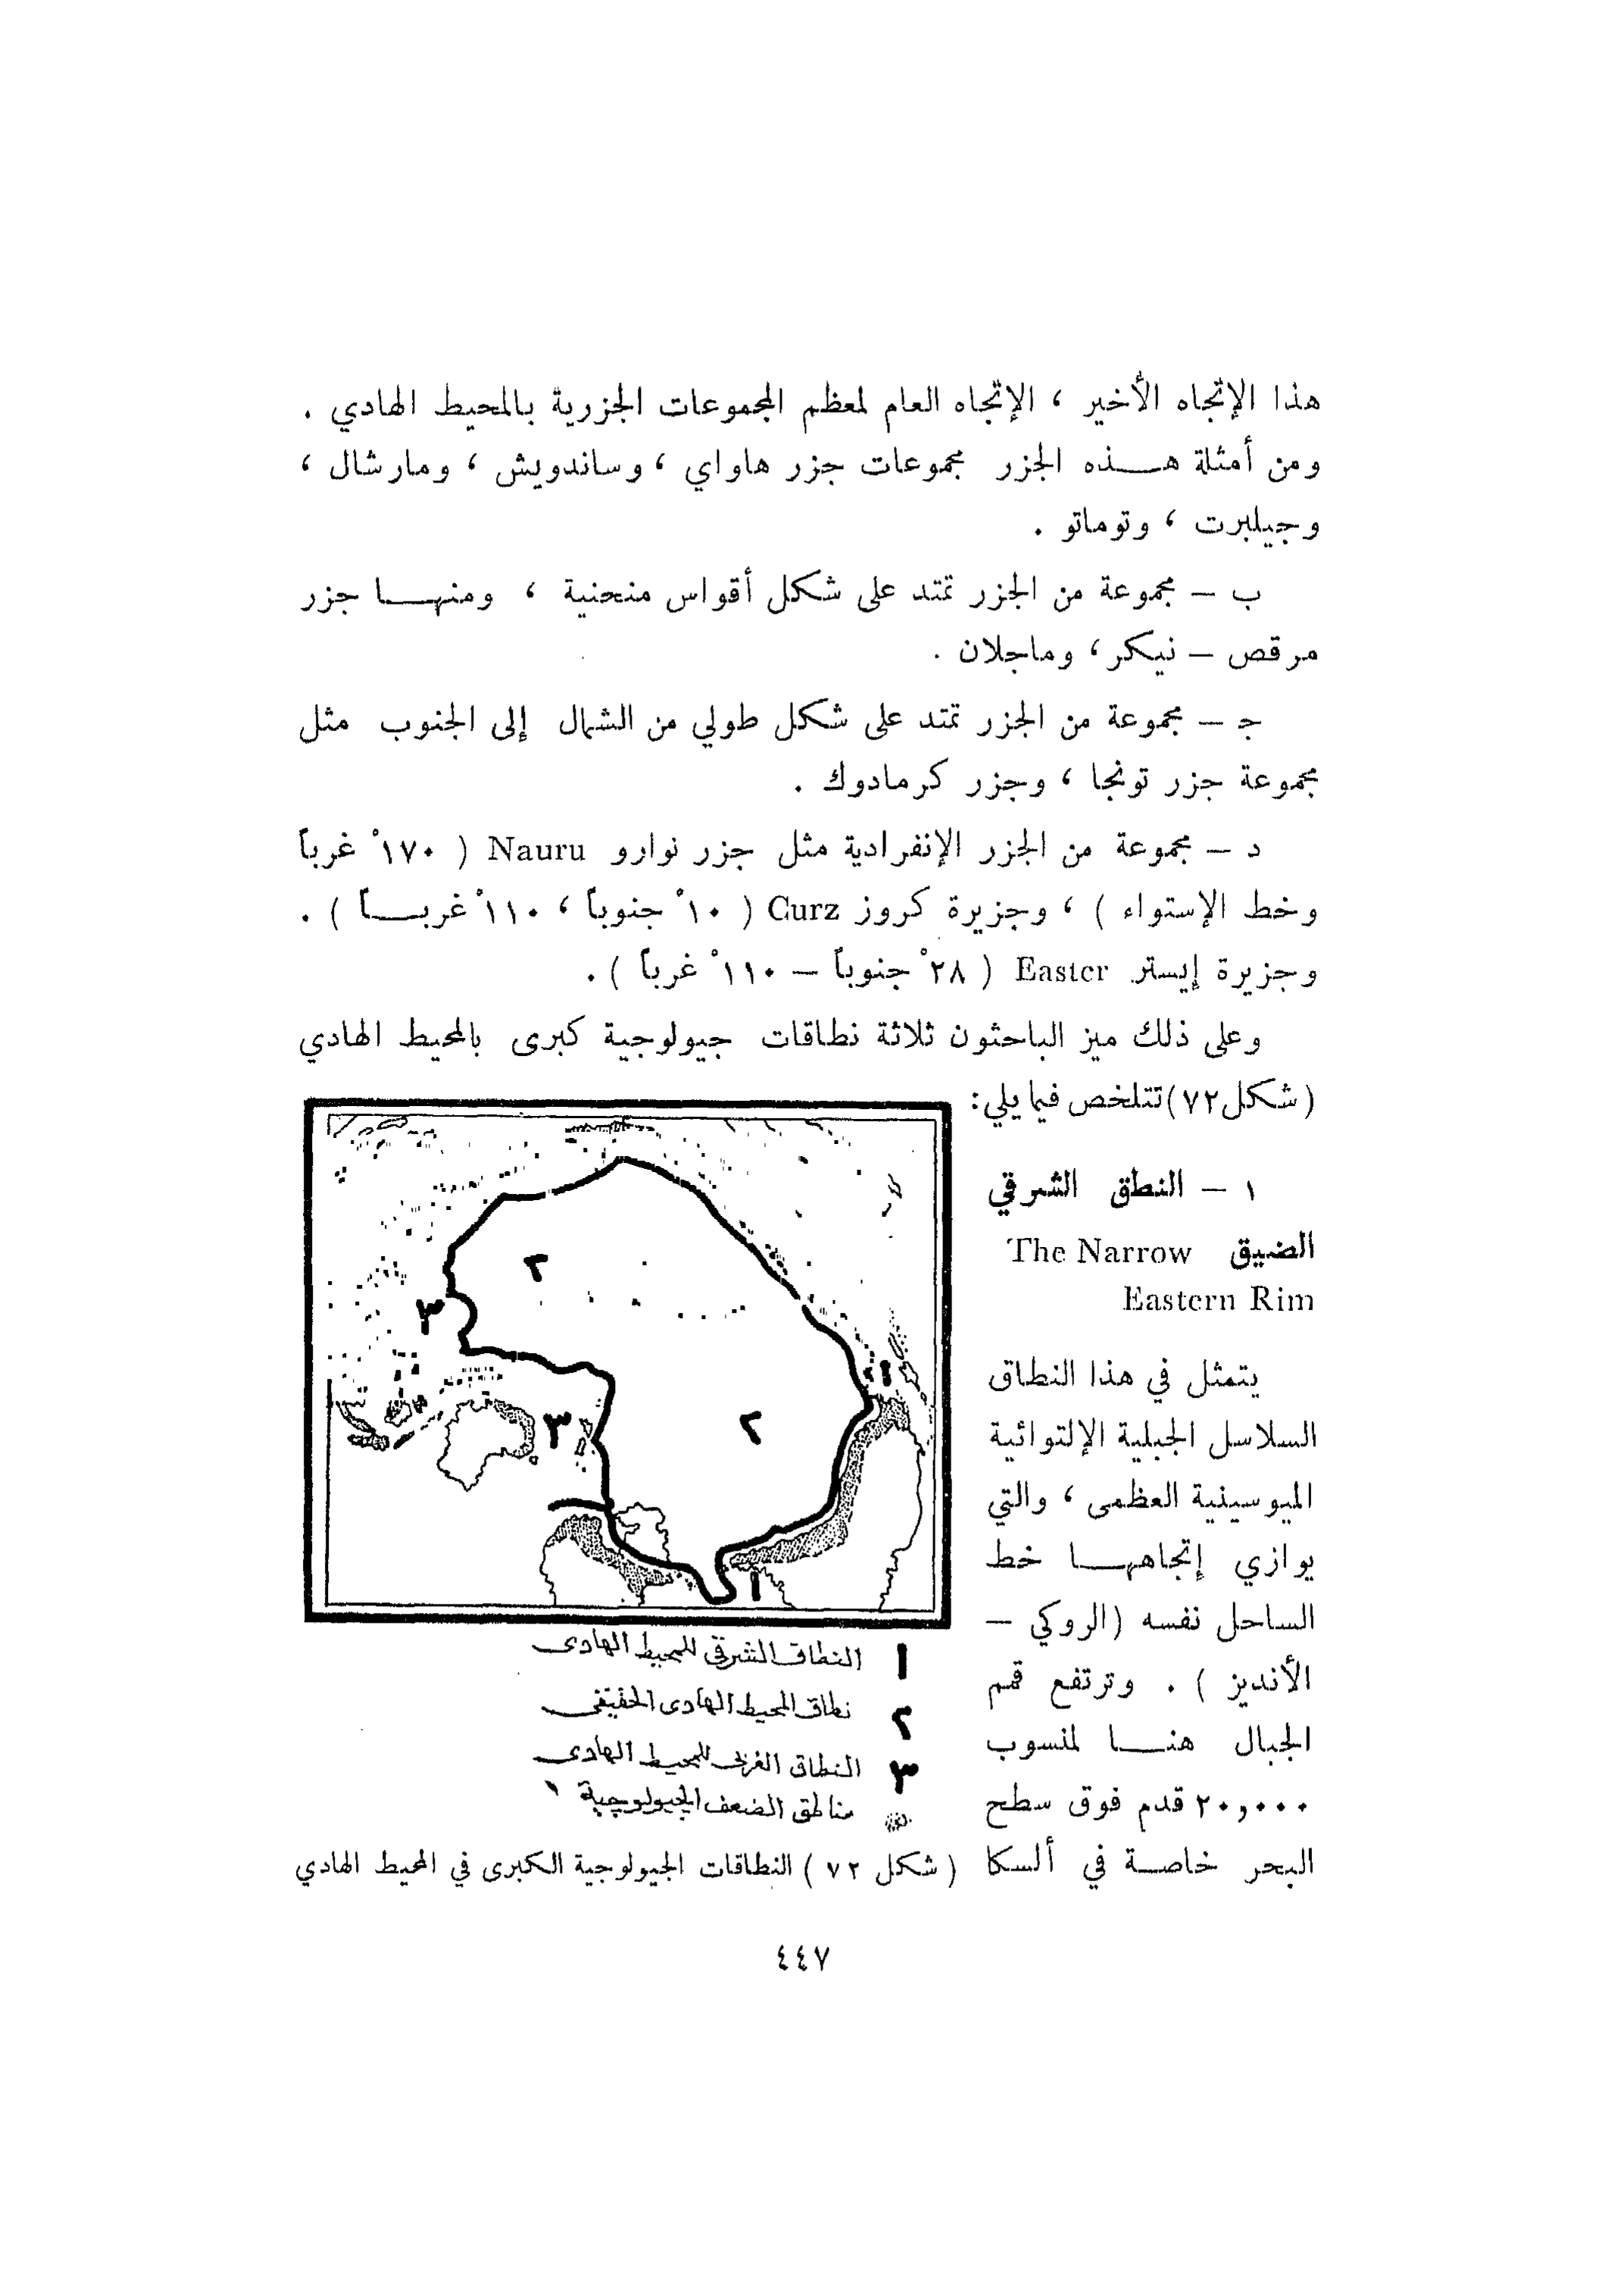 هذا الإتجاه الأخير ، الإتجاه العام لمعظم المجموعات الجزرية بالمحيط الهادي .
ومن أمثلة هـــذه الجزر مجموعات جزر هاواي ، وساندويش ، ومارشال ،
وجيلبرت ، وتوماتو .
ب – مجموعة من الجزر تمتد على شكل أقواس منحنية ، ومنهـــا جزر
مرقص – نيكر ، وماجلان .
جـ – مجموعة من الجزر تمتد على شكل طولي من الشمال إلى الجنوب مثل
مجموعة جزر تونجا ، وجزر كرمادوك .
د – مجموعة من الجزر الإنفرادية مثل جزر نوارو Nauru ( ١٧٠° غرباً
وخط الإستواء ) ، وجزيرة كروز Curz ( ١٠° جنوباً ، ١١٠° غربـــاً ) .
وجزيرة إيستر Easter ( ٢٨° جنوباً – ١١٠° غرباً ) .
وعلى ذلك ميز الباحثون ثلاثة نطاقات جيولوجية كبرى بالمحيط الهادي
( شكل ٧٢ ) تتلخص فيما يلي :
١ – النطق الشرقي
الضيق The Narrow
Eastern Rim
يتمثل في هذا النطاق
السلاسل الجبلية الإلتوائية
الميوسينية العظمى ، والتي
يوازي إتجاههـــا خط
الساحل نفسه ( الروكي –
الأنديز ) . وترتفع قمم
الجبال هنـــا لمنسوب
٢٠,٠٠٠ قدم فوق سطح
البحر خاصـة في ألسكا
٢
٣
١
٣
٢
١
١ النطاق الشرقي للمحيط الهادى
٢ نطاق المحيط الهادى الحقيقى
٣ النطاق الغربى للمحيط الهادى
مناطق الضعف الجيولوجية
( شكل ٧٢ ) النطاقات الجيولوجية الكبرى في المحيط الهادي
٤٤٧